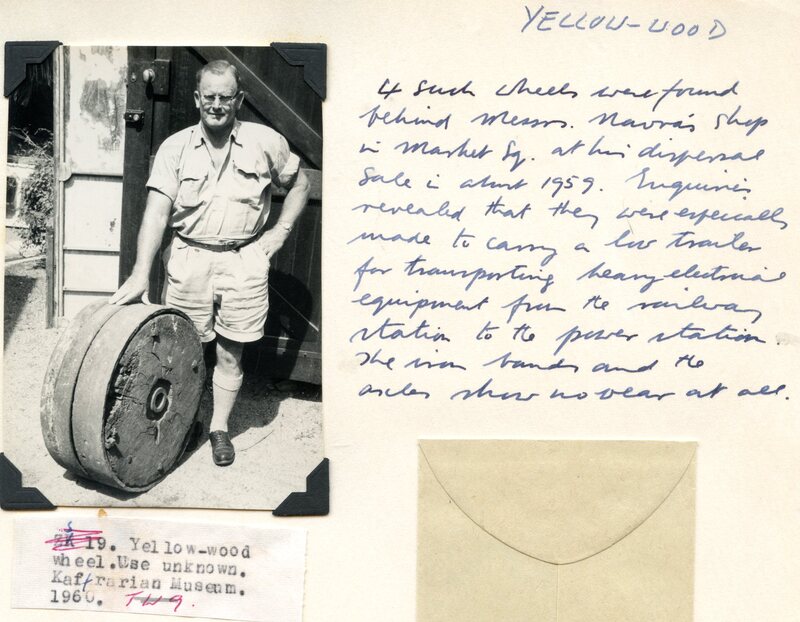 YELLOW-WOOD
4 such wheels were found
behind Messrs. Navra's Shop
in Market Sq. at his dispersal
Sale in about 1959. Enquiries
revealed that they were especially
made to carry a low trailer
for transporting heavy electrical
equipment from the railway
station to the power station.
The iron bands and the
axles show no wear at all.
19. Yellow-wood
wheel.Use unknown.
Kaffrarian Museum.
1960.